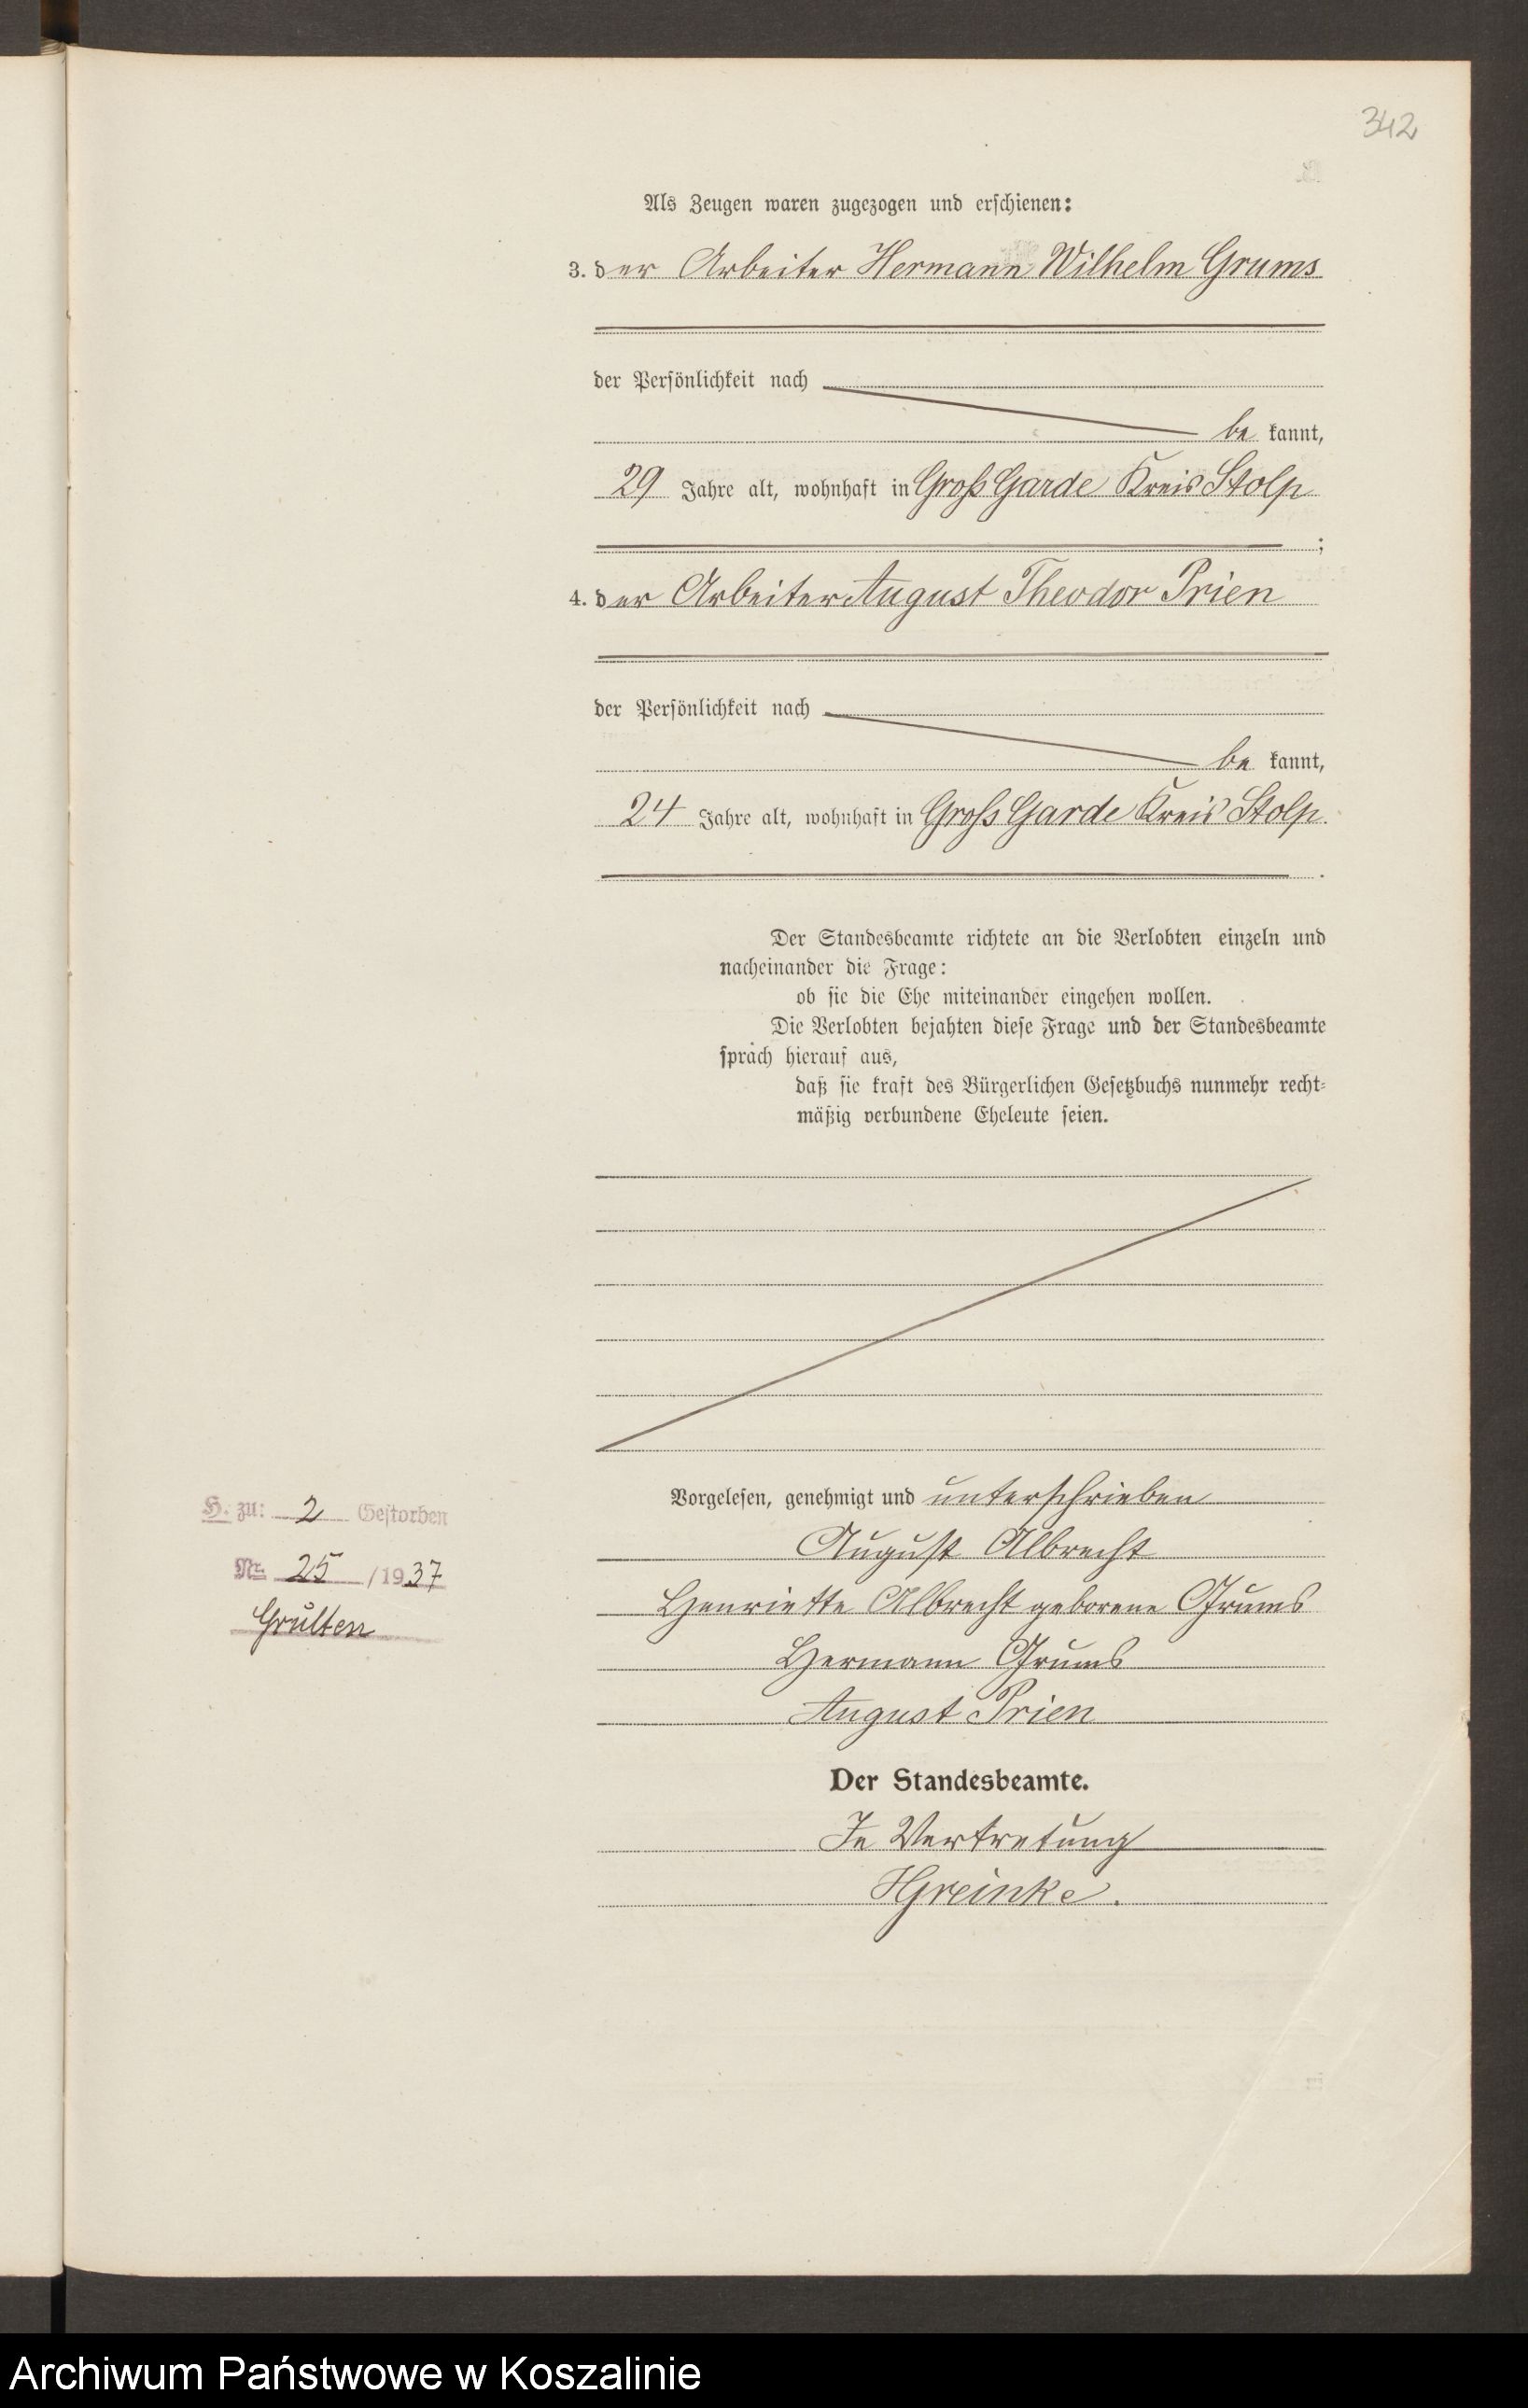 342
Als Zeugen waren zugezogen und erschienen:
3. der Arbeiter Hermann Wilhelm Grums
der Persönlichkeit nach
be kannt,
29 Jahre alt, wohnhaft in Groß Garde Kreis Stolp
;
4. der Arbeiter August Theodor Prien
der Persönlichkeit nach
be kannt,
24 Jahre alt, wohnhaft in Groß Garde Kreis Stolp
.
Der Standesbeamte richtete an die Verlobten einzeln und
nacheinander die Frage:
ob sie die Ehe miteinander eingehen wollen.
Die Verlobten bejahten diese Frage und der Standesbeamte
sprach hierauf aus,
daß sie kraft des Bürgerlichen Gesetzbuchs nunmehr recht-
mäßig verbundene Eheleute seien.
Vorgelesen, genehmigt und unterschrieben
August Albrecht
Henriette Albrecht geborene Grums
Hermann Grums
August Prien
Der Standesbeamte.
In Vertretung
HGreinke.
H. zu: 2 Gestorben
Nr. 25 / 1937
Grülten
Archiwum Państwowe w Koszalinie